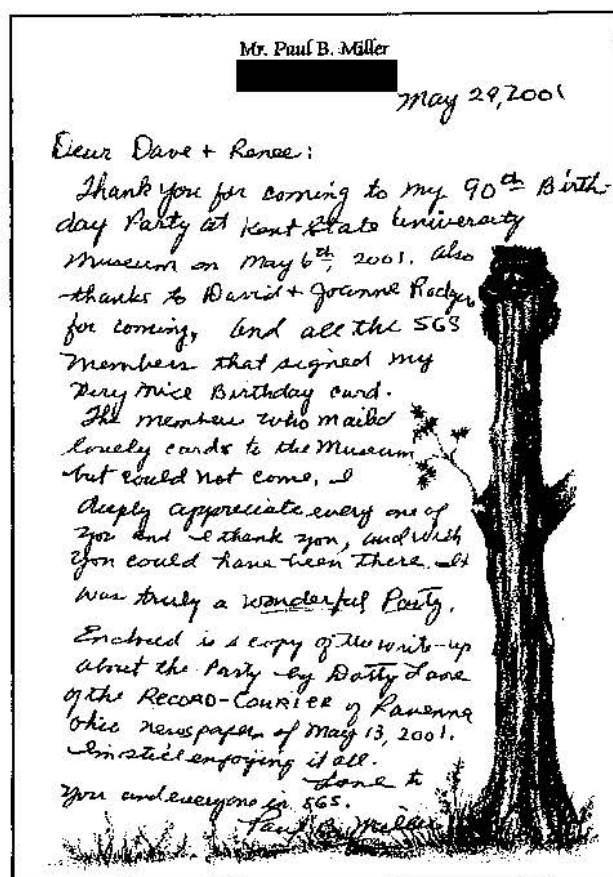 Mr. Paul B. Miller
May 29, 2001
Dear Dave + Renee:
Thank you for coming to my 90th Birth-
day Party at Kent State University
Museum on May 6th, 2001. Also
thanks to David & Joanne Rodgers
for coming, and all the SGS
members that signed my
very nice Birthday card.
The members who mailed
lovely cards to the Museum
but could not come, I
deeply appreciate every one of
you and I thank you, and wish
you could have been there. It
was truly a wonderful Party.
Enclosed is a copy of the write-up
about the Party by Dotty Lane
of the RECORD-COURIER of Ravenna
Ohio newspaper of May 13, 2001.
I'm still enjoying it all.
Love to
you and everyone in SGS.
Paul B. Miller